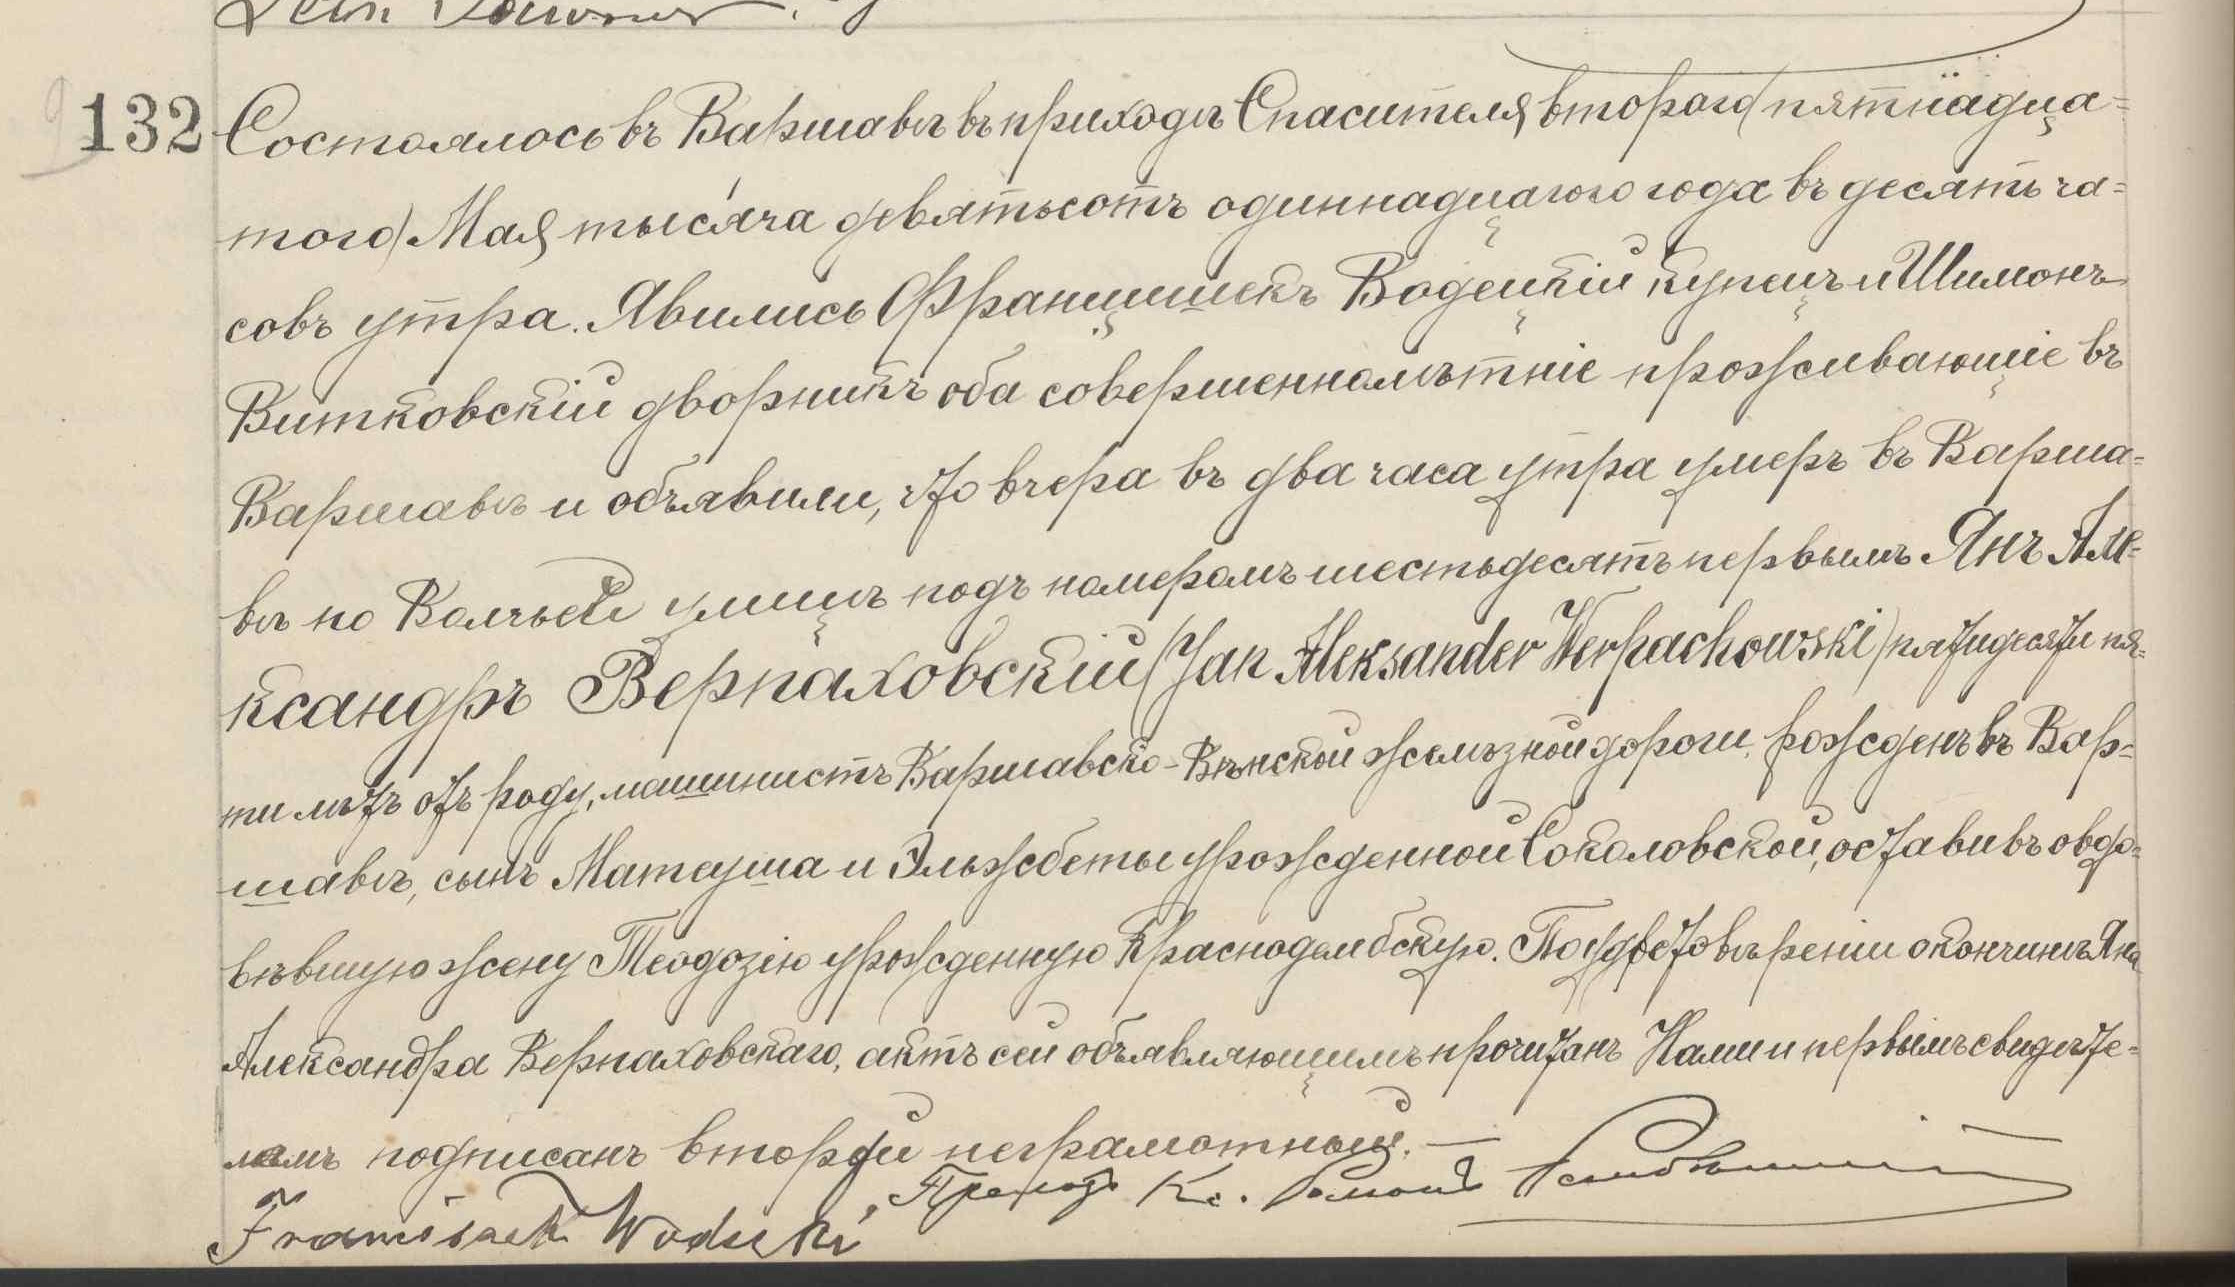 132 Состоялось въ Варшавѣ въ приходѣ Спасителя, второго (пятнадца=
того) Мая, тысяча девятьсотъ одиннадцатого года въ десять ча=
совъ утра. Явились Францишекъ Водецкій, купецъ и Шимонъ
Витковскій дворникъ оба совершеннолѣтніе проживающіе въ
Варшавѣ и объявили, что вчера въ два часа утра умеръ въ Варша=
вѣ по Волчьей улицѣ подъ номеромъ шестьдесятъ первымъ Янъ Але=
ксандръ Верпаховскій (Jan Aleksander Werpachowski) пятидесяти пя=
ти лѣтъ отъ роду, машинистъ Варшавско-Вѣнской желѣзной дороги, рожденъ въ Вар=
шавѣ, сынъ Матеуша и Эльжбеты урожденной Соколовской, оставивъ овдо=
вѣвшую жену Теодозію урожденную Краснодембскую. По удостовѣреніи о кончинѣ Яна
Александра Верпаховскаго, актъ сей объявляющимъ прочитанъ Нами и первымъ свидѣте=
лемъ подписанъ второй неграмотный. —
Franciszek Wodecki Кс.